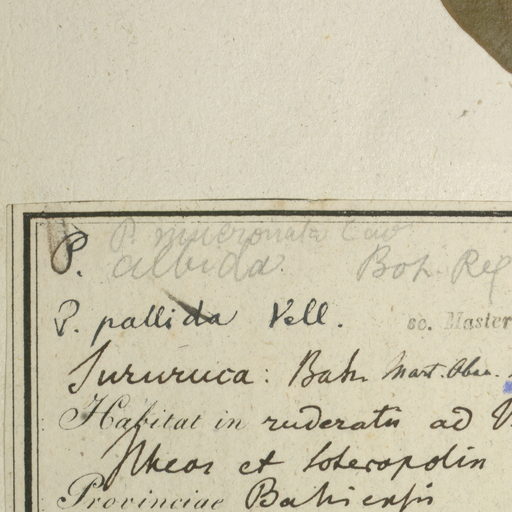 P. mucronata Cav
P. albida. Bot. Reg
P. pallida Vell. sc. Master
Sururuca: Bah. Mart. Obs.
Habitat in ruderatis ad
Ilheos et Soteropolin
Provinciae Bahiensis